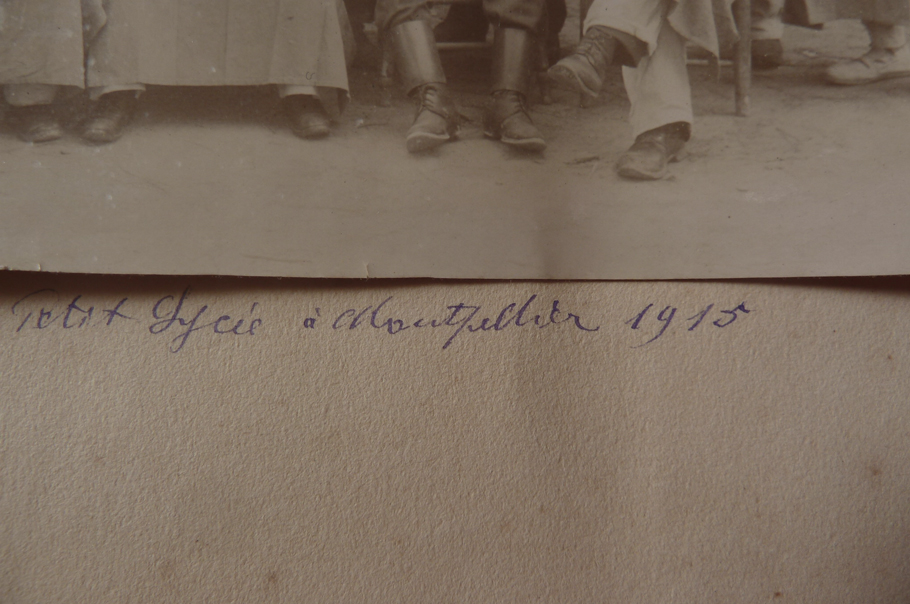 Petit Lycée à Montpellier 1915